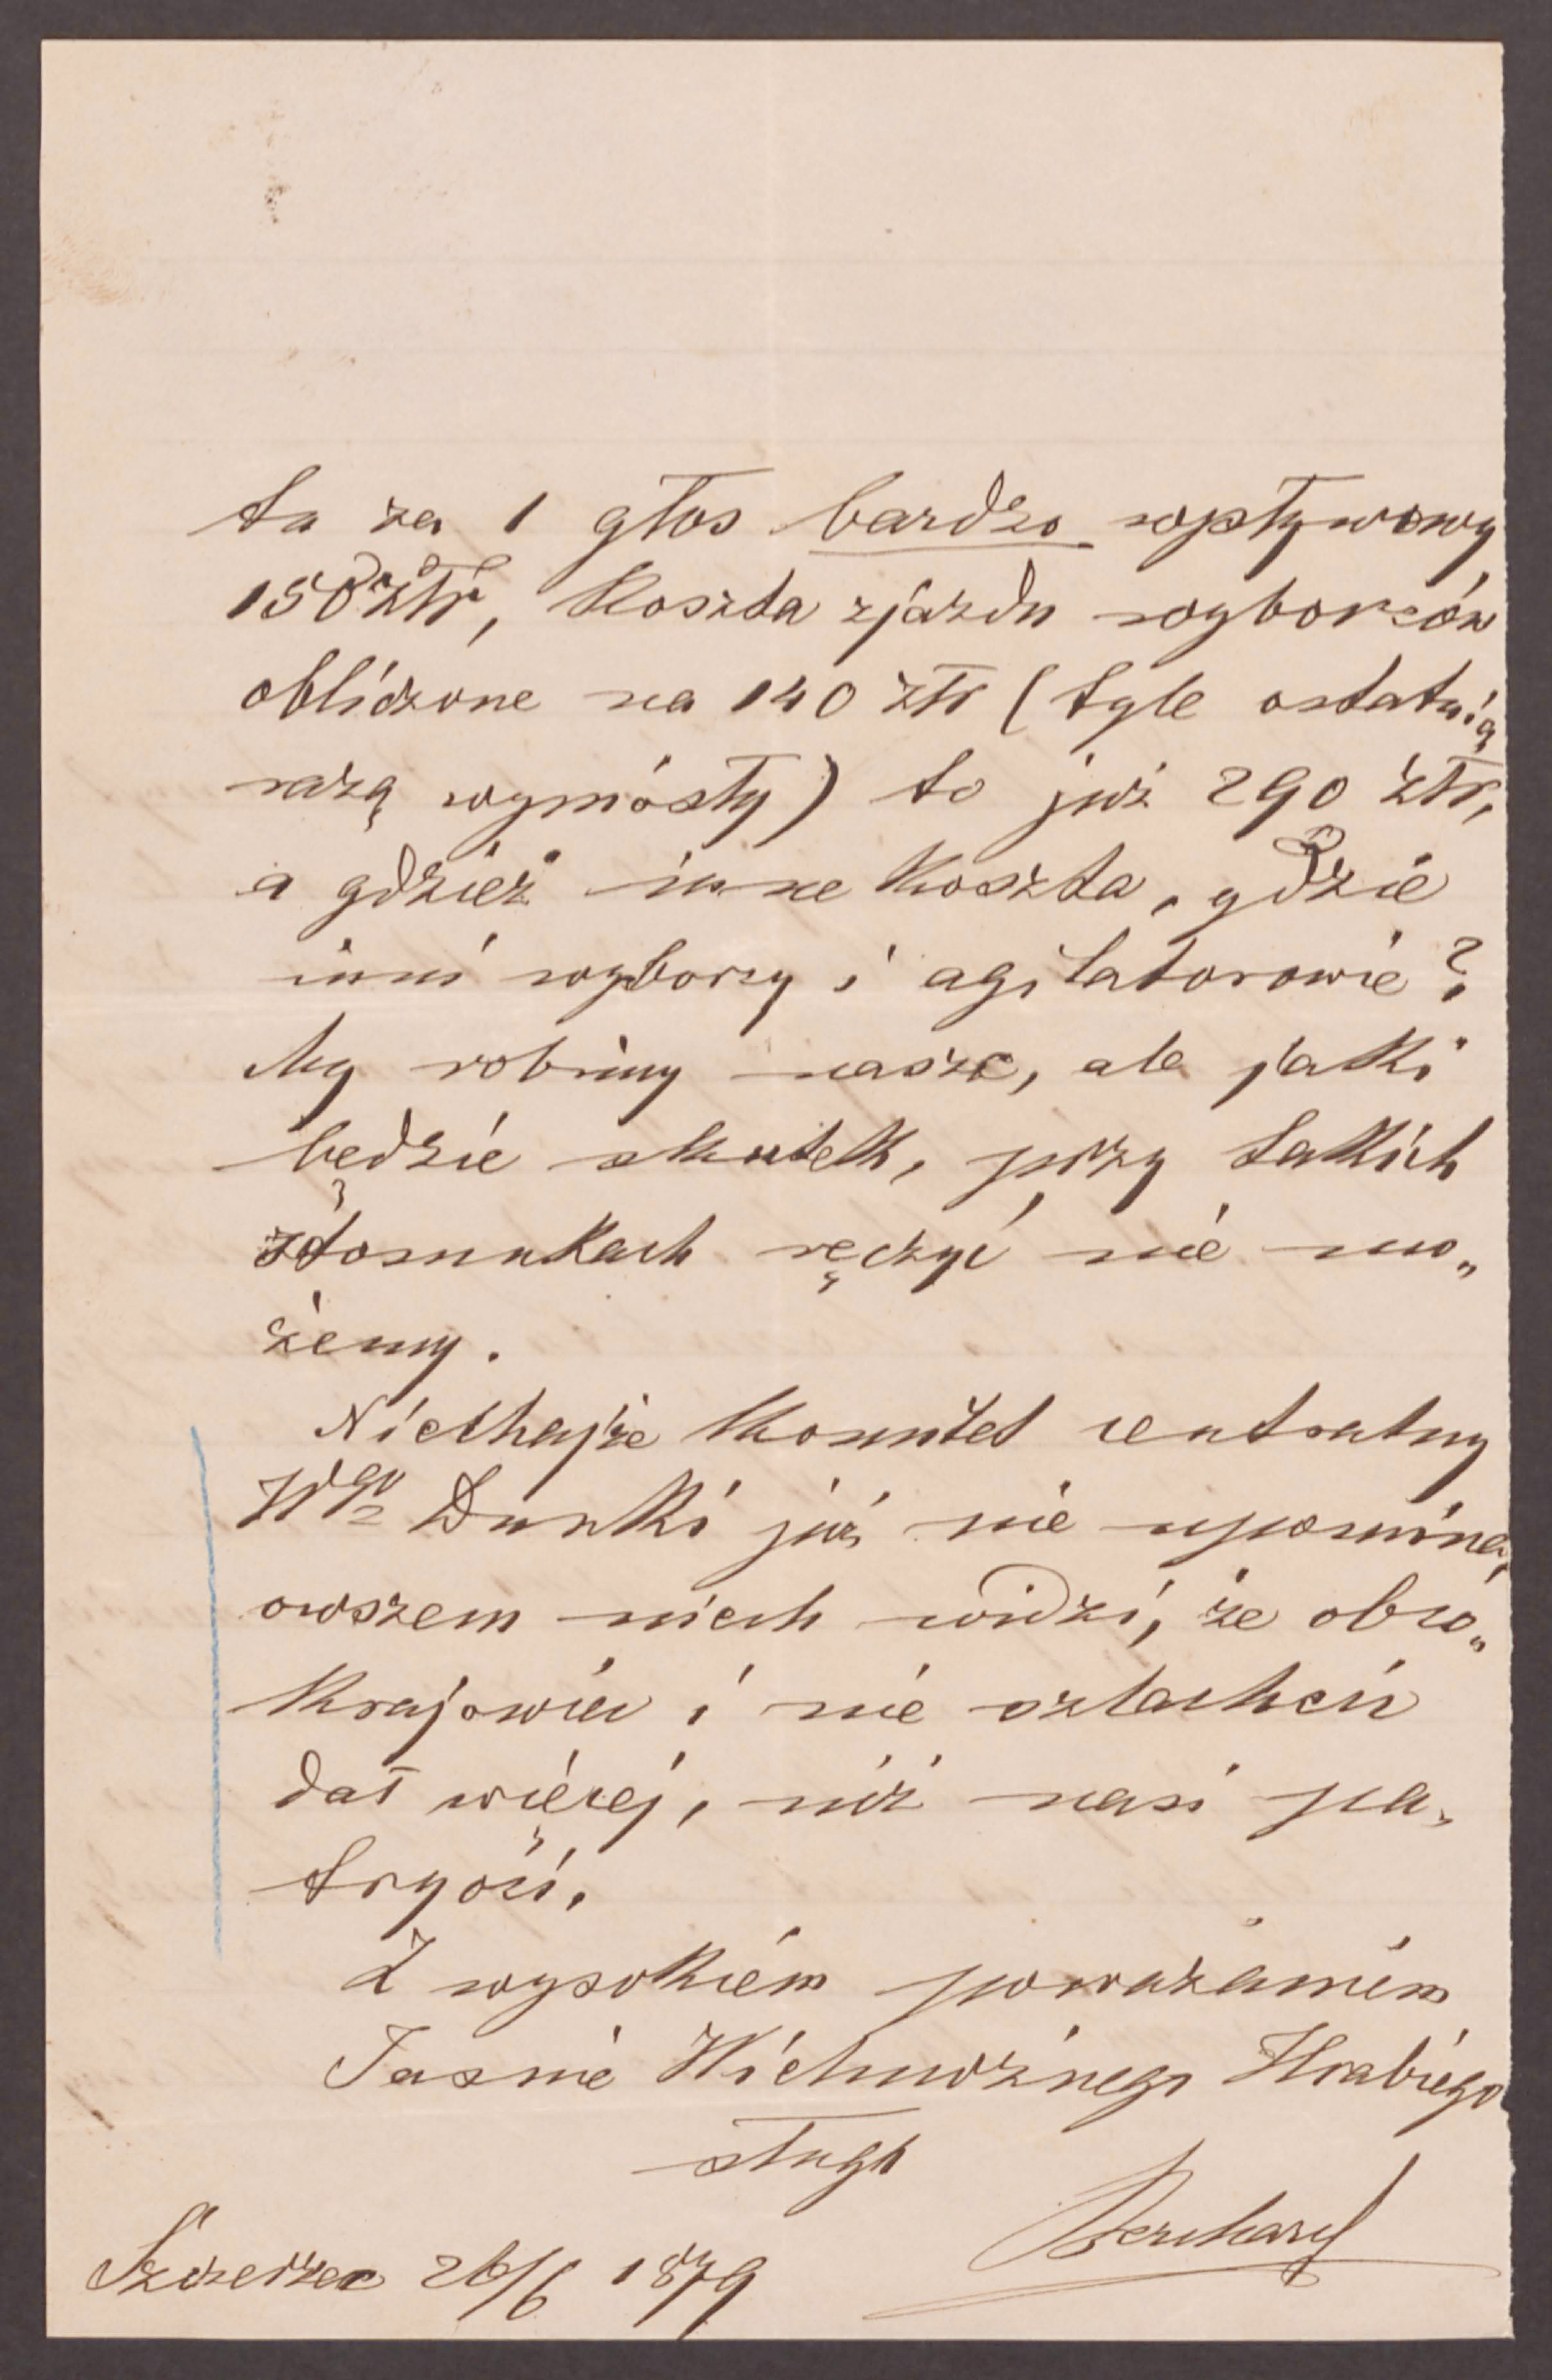 ta za 1 głos bardzo wpływowy
150 złr, Koszta zjazdu wyborców
obliczone na 140 złr (tyle ostatnią
razą wyniosły) to już 290 złr,
a gdzież inne Koszta, gdzie
inni wyborcy i agitatorowie?
My robimy nasze, ale jaki
będzie skutek, przy takich
stosunkach ręczyć nie mo„
żemy.
Niechajże Komitet centralny
Wgo Dunki już nie upomina,
owszem niech widzi, że obco„
Krajowiec i nie szlachcic
dał więcej, niż nasi pa„
tryoci.
Z wysokiém poważaniem
Jasnie Wielmożnego Hrabiego
sługa
Szczerzec 26/6 1879